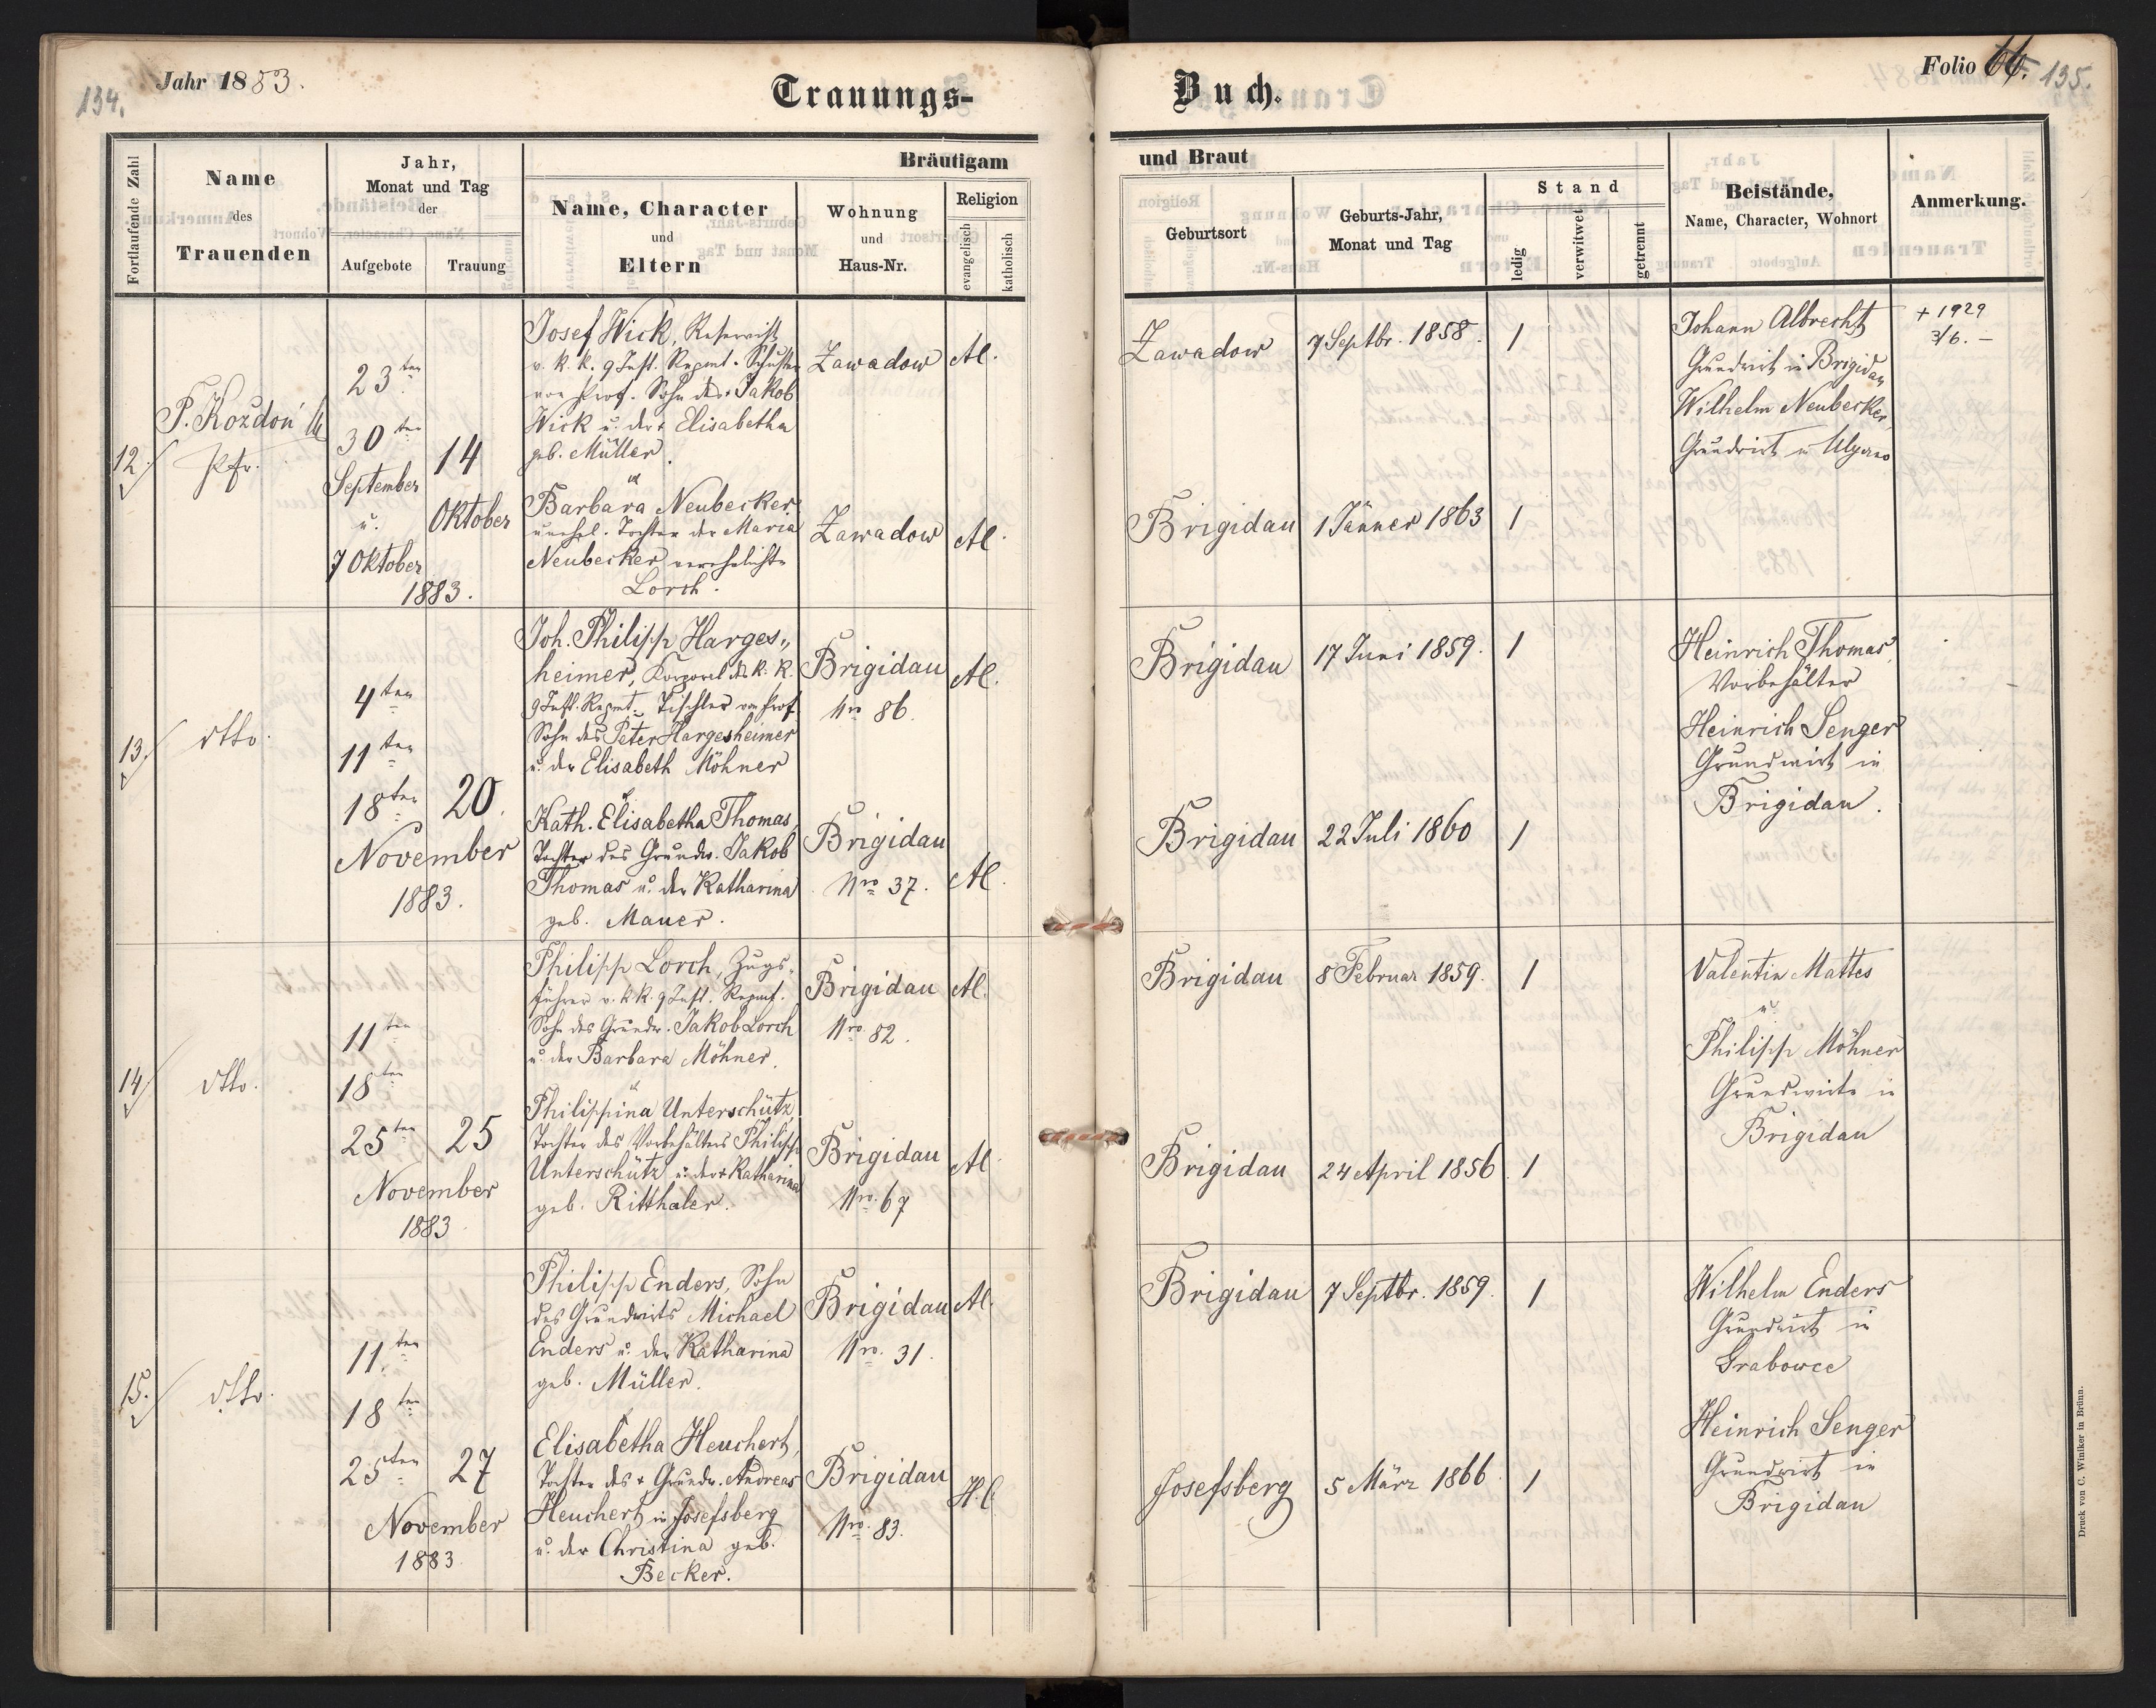 134.
Jahr 1883.
Trauungs-
Buch.
Folio 66. 135.
Fortlaufende Zahl
Name
des
Trauenden
Jahr,
Monat und Tag
der
Aufgebote
Trauung
Bräutigam
Name, Character
und
Eltern
Wohnung
und
Haus-Nr.
Religion
evangelisch
katholisch
und Braut
Geburtsort
Geburts-Jahr,
Monat und Tag
Stand
ledig
verwitwet
getrennt
Beistände,
Name, Character, Wohnort
Anmerkung.
12.
P. Kozdoń
Pfr.
23ten
30ten
September
u.
7 Oktober
14
Oktober
1883.
Josef Wick, Reservist
v. k. k. 9 Inft. Regmt. Schuster
von Prof. Sohn des + Jakob
Wick u. der + Elisabetha
geb. Müller.
Zawadow
A.C.
Zawadow
7 Septbr. 1858.
1
Johann Albrecht
Grundwirt in Brigidau
Wilhelm Neubecker
Grundwirt in
+ 1929
3/6. –
u.
Barbara Neubecker,
unehel. Tochter der Maria
Neubecker verehelichte
Lorch.
Zawadow
A.C.
Brigidau
1 Jänner 1863
1
13.
dtto.
4ten
11ten
18ten
November
1883.
20.
Joh. Philipp Harges„
heimer, Korporal des k. k.
9 Inft. Regmt. Tischler von Prof.
Sohn des Peter Hargesheimer
u. der Elisabeth Möhner
Brigidau
Nro 86.
A.C.
Brigidau
17 Juni 1859.
1
Heinrich Thomas,
Vorbehälter
Heinrich Senger
Grundwirt in
Brigidau.
u.
Kath. Elisabetha Thomas,
Tochter des Grundw. Jakob
Thomas u. der Katharina
geb. Mauer.
Brigidau
Nro 37.
A.C.
Brigidau
22 Juli 1860
1
14.
dtto.
11ten
18ten
25ten
November
1883.
25
Philipp Lorch, Zugs„
führer v. k. k. 9 Inft. Regmt.
Sohn des Grundw. Jakob Lorch
u. der Barbara Möhner.
Brigidau
Nro 82.
A.C.
Brigidau
8 Februar 1859.
1
Valentin Mattes
u.
Philipp Möhner
Grundwirte in
Brigidau
u.
Philippina Unterschütz,
Tochter des Vorbehälters Philipp
Unterschütz u. der + Katharina
geb. Ritthaler.
Brigidau
Nro. 67
A.C.
Brigidau
24 April 1856
1
15.
dtto.
11.ten
18ten
25ten
November
1883.
27
Philipp Enders, Sohn
des Grundwirts Michael
Enders u. der Katharina
geb. Müller.
Brigidau
Nro. 31.
A.C.
Brigidau
7 Septbr. 1859.
1
Wilhelm Enders
Grundwirt in
Grabowce
Heinrich Senger
Grundwirt in
Brigidau
Elisabetha Heuchert,
Tochter des + Grundw. Andreas
Heuchert in Josefsberg
u. der Christina geb.
Becker.
Brigidau
Nro. 83.
H.C.
Josefsberg
5 März 1866
1
Druck von C. Winiker in Brünn.